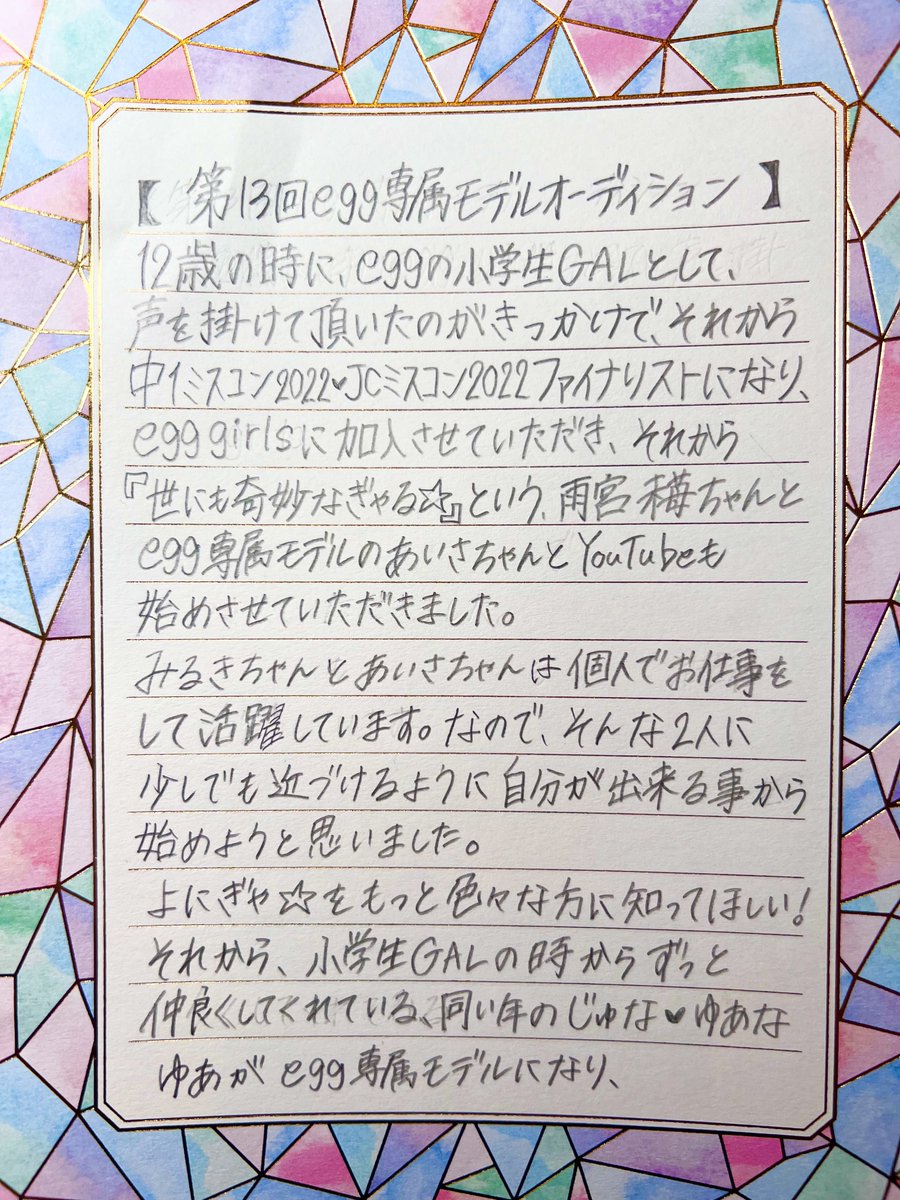 【第13回egg専属モデルオーディション】
12歳の時に、eggの小学生GALとして、
声を掛けて頂いたのがきっかけで、それから
中1ミスコン2022♥JCミスコン2022ファイナリストになり、
egg girlsに加入させていただき、それから
『世にも奇妙なぎゃる☆』という、雨宮 ちゃんと
egg専属モデルのあいさちゃんとYouTubeも
始めさせていただきました。
みるきちゃんとあいさちゃんは個人でお仕事を
して活躍しています。なので、そんな2人に
少しでも近づけるように自分が出来る事から
始めようと思いました。
よにぎゃ☆をもっと色々な方に知ってほしい!
それから、小学生GALの時からずっと
仲良くしてくれている、同い年のじゅな♥ゆあな
ゆあがegg専属モデルになり、